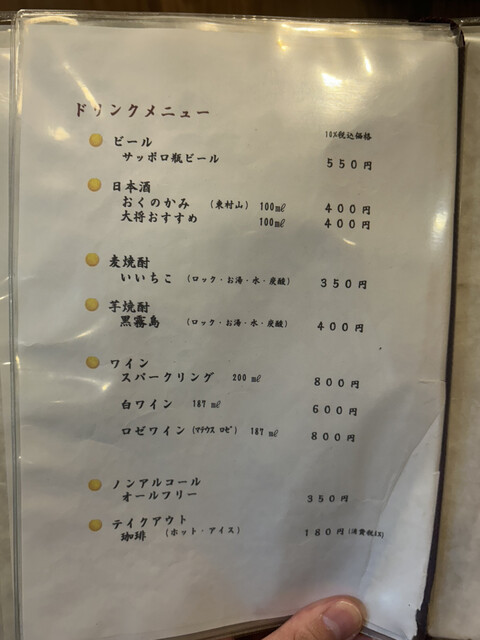 ドリンクメニュー
10%税込価格
ビール
サッポロ瓶ビール 550円
日本酒
おくのかみ (東村山) 100㎖ 400円
大将おすすめ 100㎖ 400円
麦焼酎
いいちこ (ロック・お湯・水・炭酸) 350円
芋焼酎
黒霧島 (ロック・お湯・水・炭酸) 400円
ワイン
スパークリング 200㎖ 800円
白ワイン 187㎖ 600円
ロゼワイン(マテウス ロゼ) 187㎖ 800円
ノンアルコール
オールフリー 350円
テイクアウト
珈琲 (ホット・アイス) 180円(消費税8%)